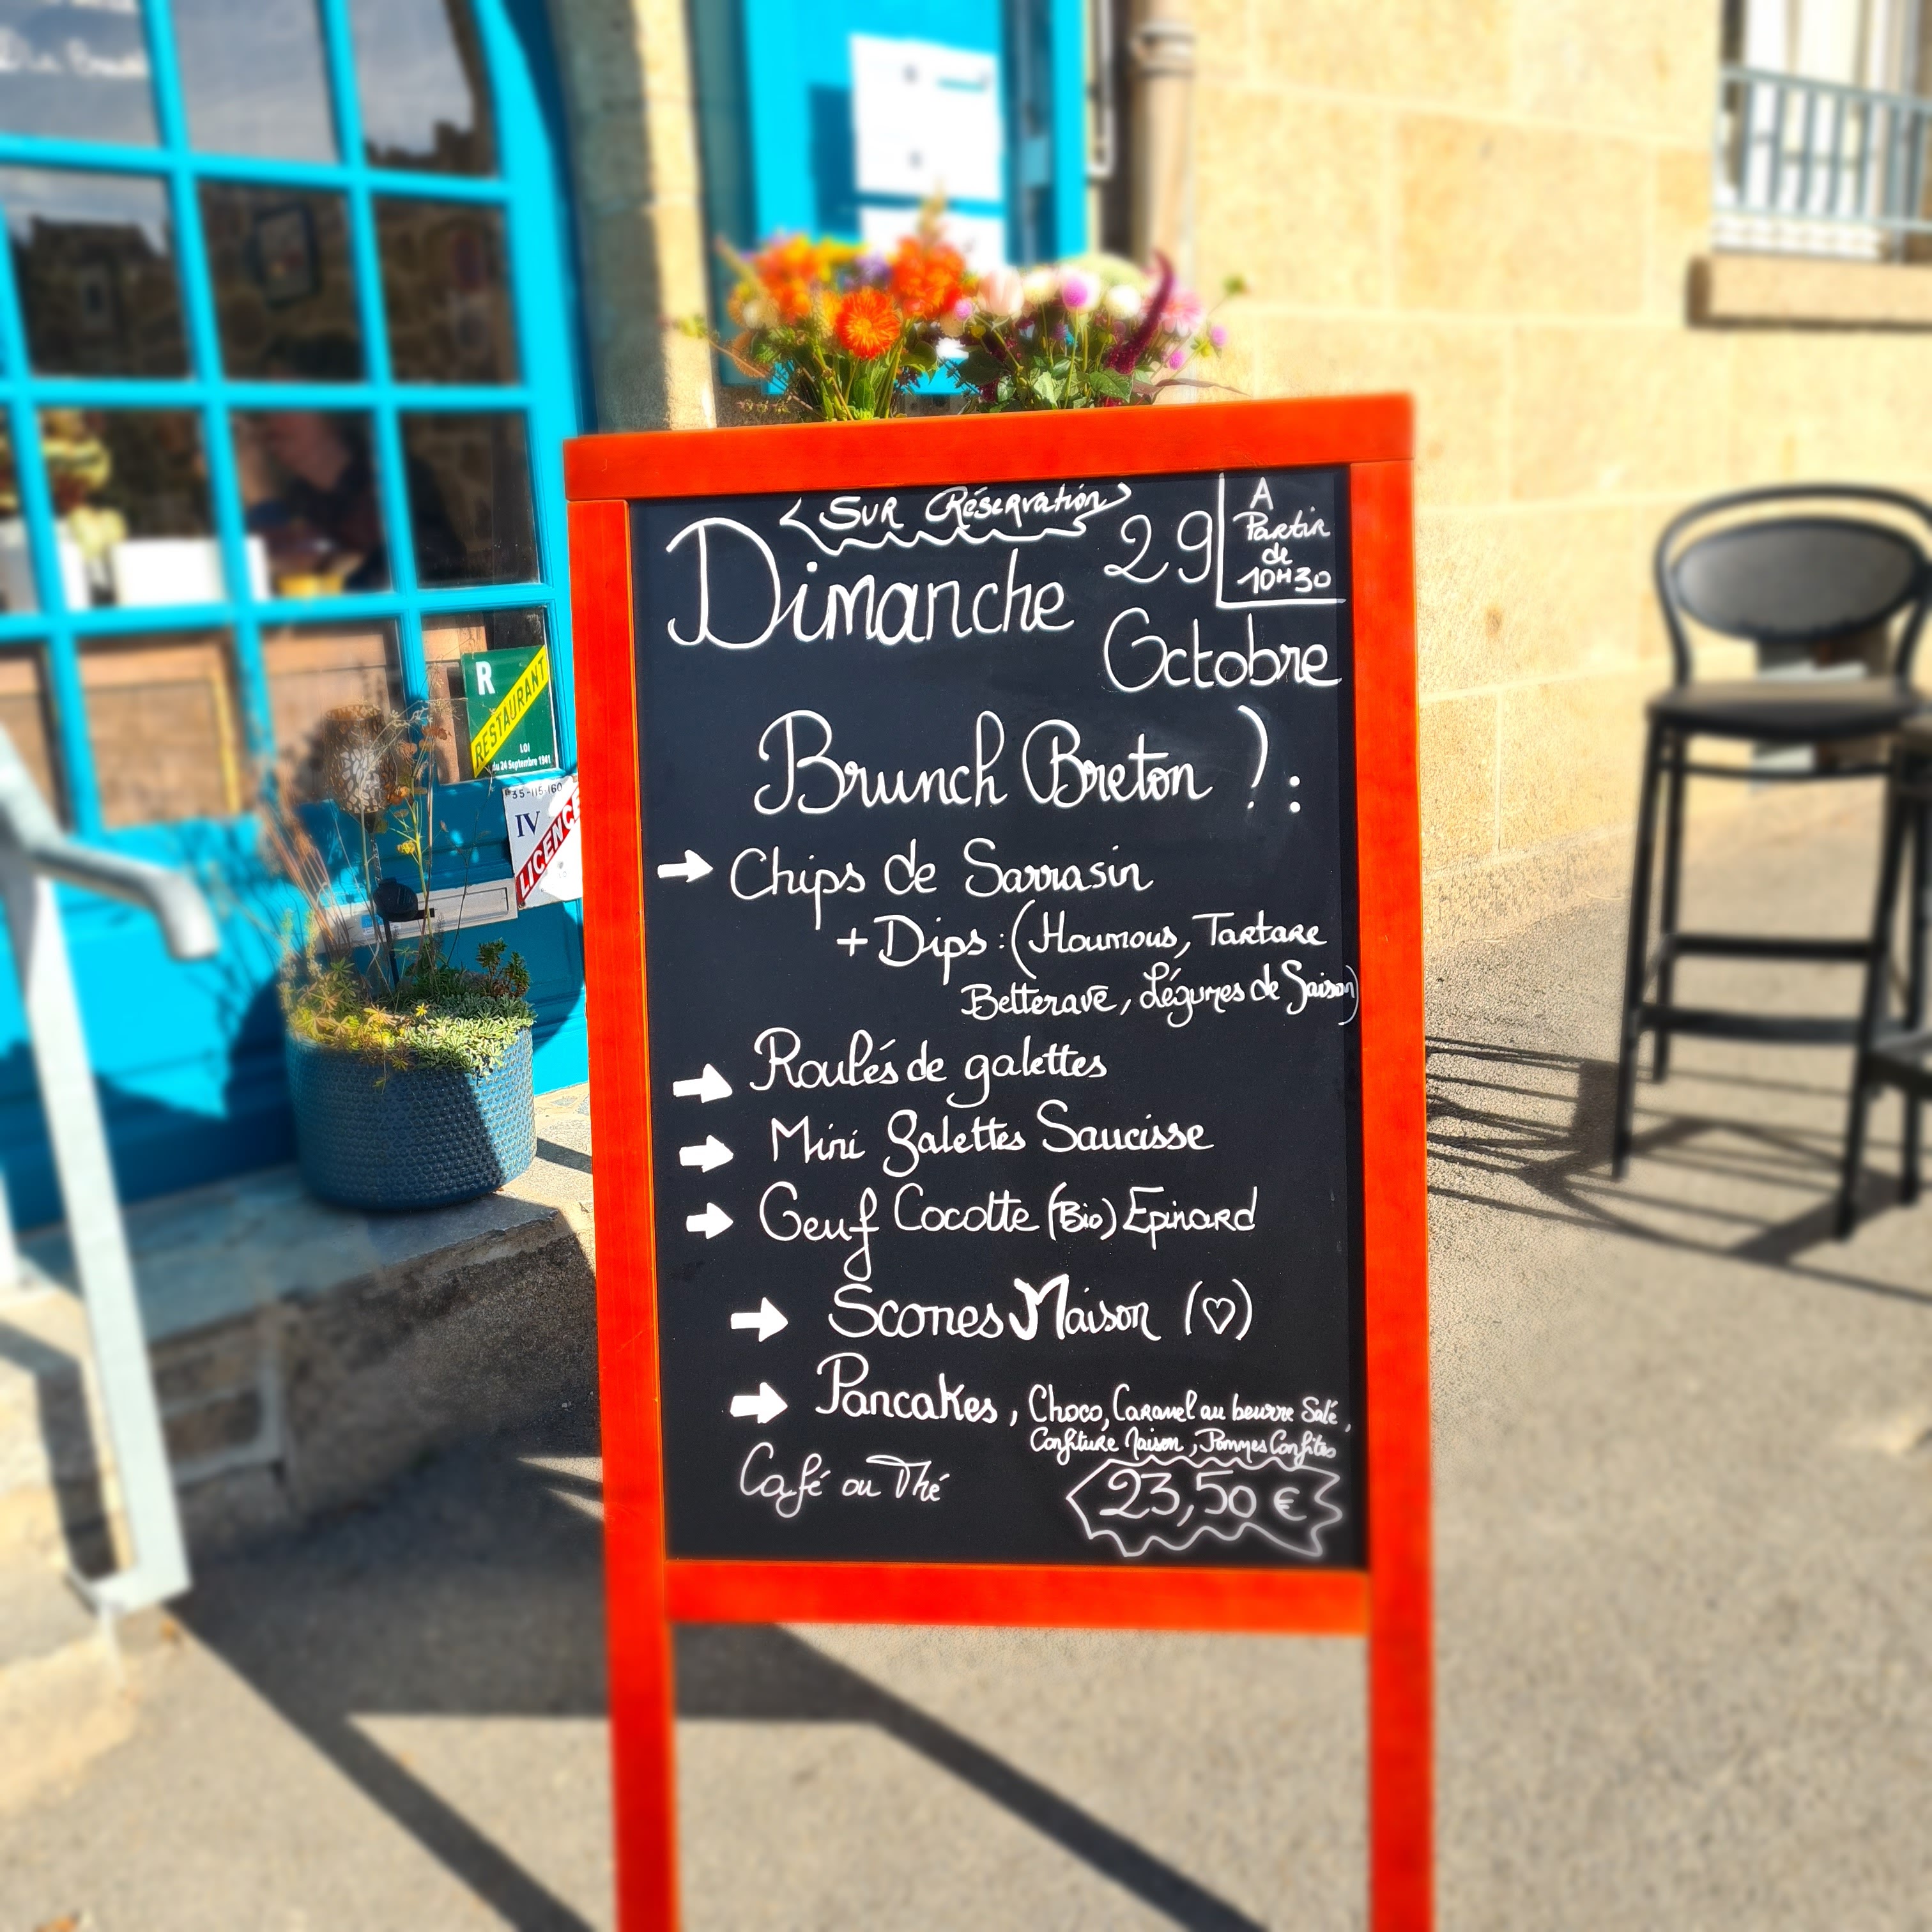 SUR Réservation
Dimanche 29
A
Partir
de
10H30
Octobre
Brunch Breton ! :
→ Chips de Sarrasin
+ Dips : (Houmous, Tartare
Betterave, Légumes de Saison)
→ Roulés de galettes
→ Mini galettes Saucisse
→ Oeuf Cocotte (Bio) Epinard
→ Scones Maison (♡)
→ Pancakes, Choco, Caramel au beurre Salé,
Confiture Maison, Pommes Confites
Café ou Thé
23,50 €
R
RESTAURANT
LOI
du 24 Septembre 1941
IV
LICENCE